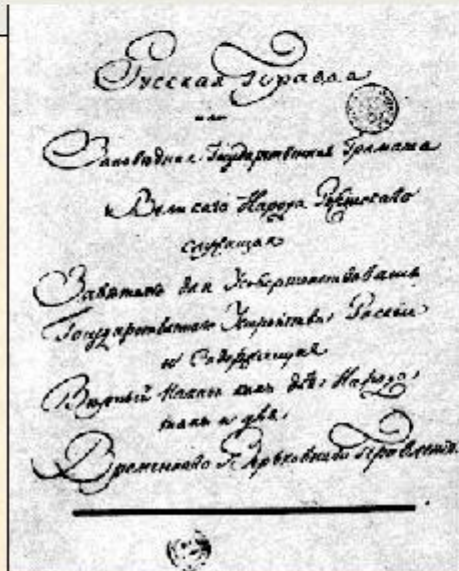 Русская Правда
или
Заповѣдная Государственная Грамата
Великаго Народа Россійскаго
служащая
Завѣтомъ для Усовершенствованія
Государственнаго Устройства Россіи
и Содержащая
Вѣрный Наказъ какъ для Народа,
такъ и для
Временнаго Верьховнаго Правленія.